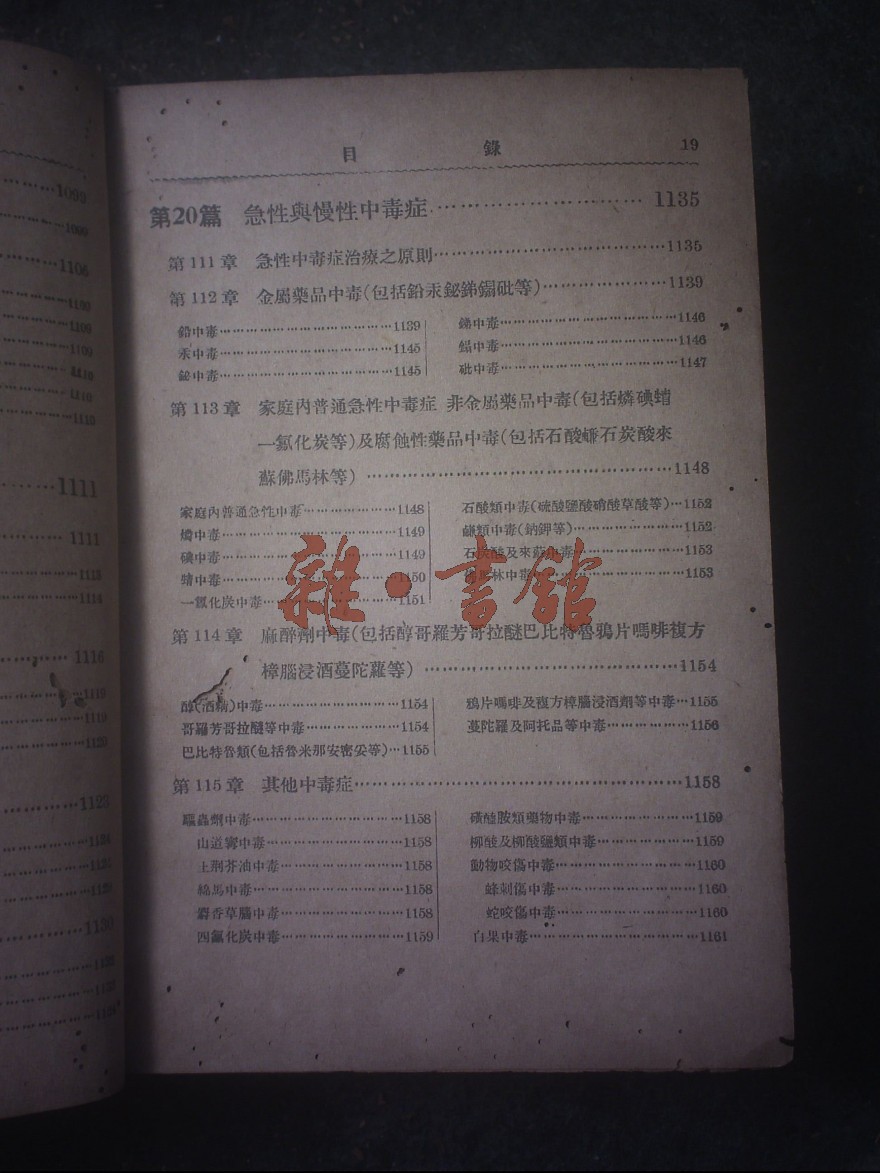 目錄 19
第20篇 急性與慢性中毒症………………………… 1135
第111章 急性中毒症治療之原則…………………………1135
第112章 金屬藥品中毒(包括鉛汞鉍銻鎘砒等)……………1139
鉛中毒…………………………1139
汞中毒…………………………1145
鉍中毒…………………………1145
銻中毒…………………………1146
鎘中毒…………………………1146
砒中毒…………………………1147
第113章 家庭內普通急性中毒症 非金屬藥品中毒(包括燐碘
一氯化炭等)及腐蝕性藥品中毒(包括石酸鹻石炭酸來
蘇佛馬林等)…………………………1148
家庭內普通急性中毒…………………1148
燐中毒…………………………1149
碘中毒…………………………1149
中毒…………………………1150
一氯化炭中毒…………………1151
石酸類中毒(硫酸鹽酸硝酸草酸等)…1152
鹻類中毒(鈉鉀等)…………………1152
石炭酸及來蘇中毒…………………1153
馬林中毒…………………1153
第114章 麻醉劑中毒(包括醇哥羅芳哥拉醚巴比特魯鴉片嗎啡複方
樟腦浸酒蔓陀蘿等)…………………………1154
醇(酒精)中毒…………………1154
哥羅芳哥拉醚等中毒…………………1154
巴比特魯類(包括魯米那安密妥等)…1155
鴉片嗎啡及複方樟腦浸酒劑等中毒…1155
蔓陀羅及阿托品等中毒…………1156
第115章 其他中毒症…………………………1158
驅蟲劑中毒…………………1158
山道寗中毒…………………1158
土荆芥油中毒…………………1158
綿馬中毒…………………1158
麝香草腦中毒…………………1158
四氯化炭中毒…………………1159
磺醯胺類藥物中毒…………………1159
柳酸及柳酸鹽類中毒…………………1159
動物咬傷中毒…………………1160
蜂刺傷中毒…………………1160
蛇咬傷中毒…………………1160
白果中毒…………………1161
雜·書館